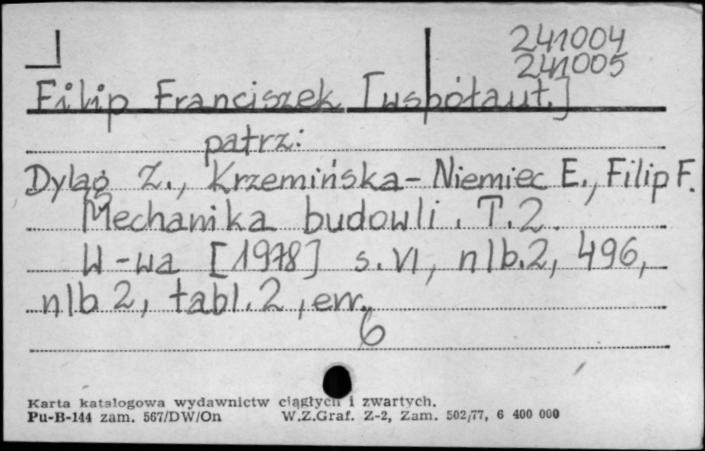 241004
241005
Filip Franciszek [współaut.]
patrz:
Dyląg Z., Krzemińska-Niemiec E., Filip F.
Mechanika budowli. T.2.
W-wa [1978] s. VI, nlb.2, 496,
nlb 2, tabl. 2, err.
6
Karta katalogowa wydawnictw ciągłych i zwartych.
Pu-B-144 zam. 567/DW/On W.Z.Graf. Z-2, Zam. 502/77, 6 400 000